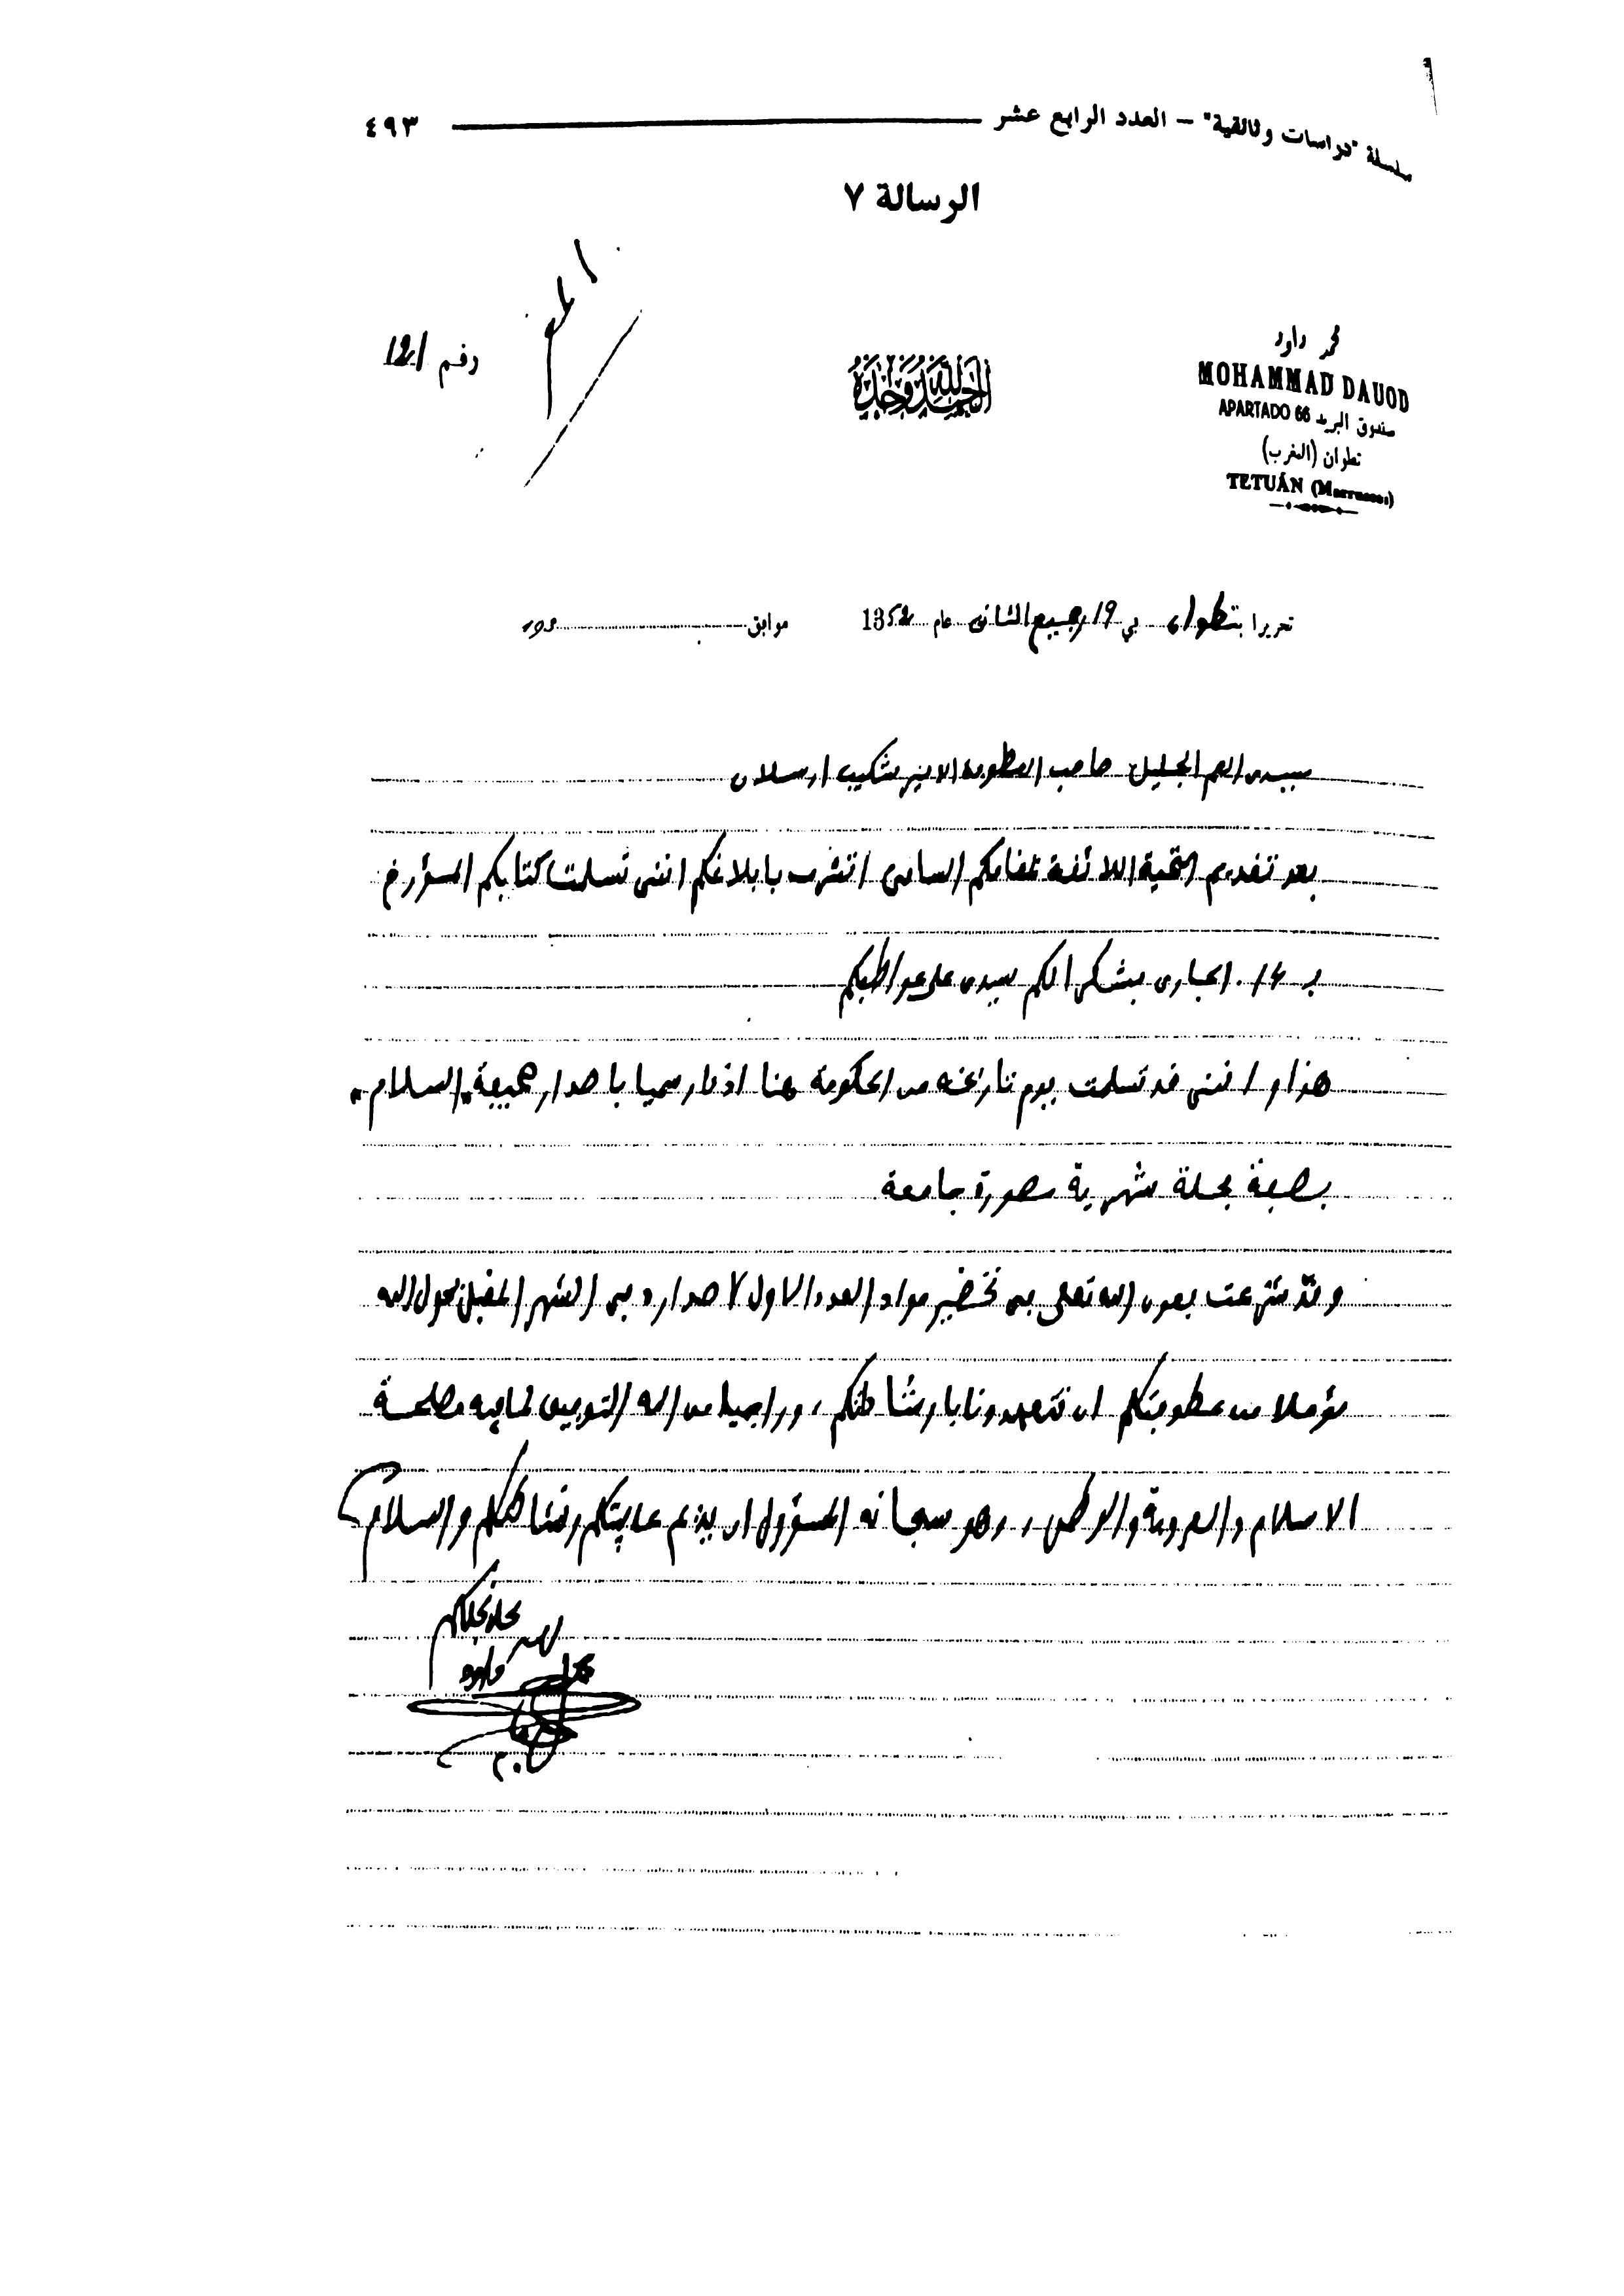 سلسلة "دراسات وثائقية" – العدد الرابع عشر ٤٩٣
الرسالة ٧
محمد داود
MOHAMMAD DAUOD
APARTADO 66 صندوق البريد
تطوان (المغرب)
TETUÁN (Marruecos)
الحمد لله وحده
رقم 121
تحريرا بتطوان في 19 ربيع الثاني عام 1352 موافق 193
سيدي العم الجليل صاحب العطوفة الامير شكيب ارسلان
بعد تقديم التحية اللائقة بمقامكم السامي اتشرف بابلاغكم انني تسلمت كتابكم المؤرخ
بـ 14 الجاري فشكرا لكم سيدي على عواطفكم
هذا و انني قد تسلمت يوم تاريخه من الحكومة هنا اذنا رسميا باصدار صحيفة "السلام"
بصفة مجلة شهرية مصورة جامعة
وقد شرعت بعون الله تعلى في تحضير مواد العدد الاول لاصداره في الشهر المقبل بحول الله
مؤملا من عطوفتكم ان تتعهدونا بارشاداتكم، وراجيا من الله التوفيق لما فيه مصلحة
الاسلام والعروبة والوطن، وهو سبحانه المسؤول ان يديم عافيتكم ونشاطكم والسلام
محمد داود